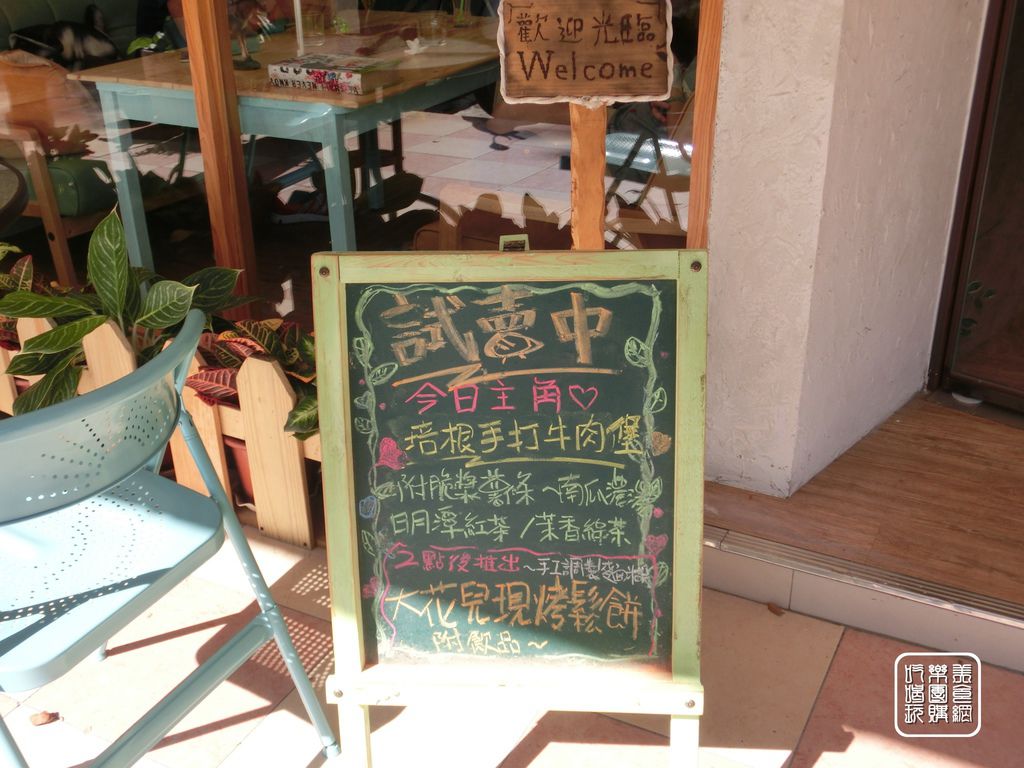 歡迎光臨
Welcome
試賣中
今日主角♡
培根手打牛肉堡
附脆漿薯條~南瓜濃湯
日月潭紅茶/茉香綠茶
2點後推出~手工調製麵糊
大花兒現烤鬆餅
附飲品~
美食網
樂團購
吃喝玩